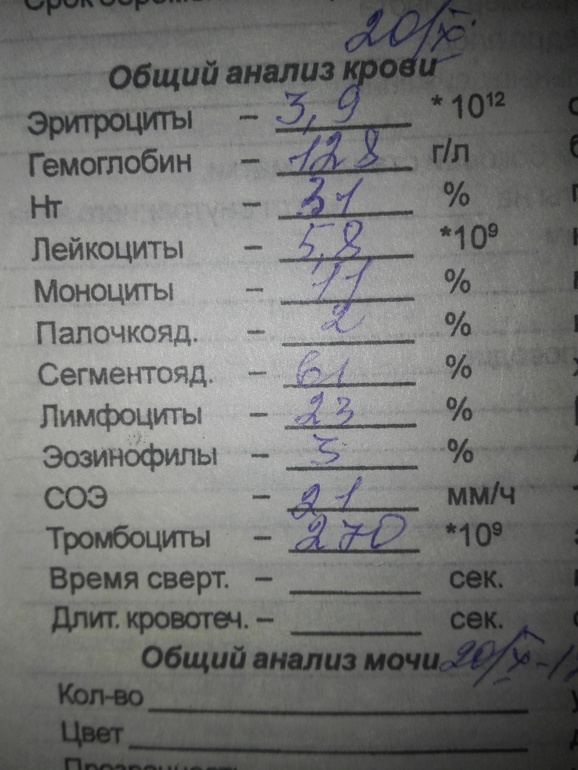 20/IX
Общий анализ крови
Эритроциты – 3,9 * 10¹²
Гемоглобин – 128 г/л
Нт – 31 %
Лейкоциты – 5,8 *10⁹
Моноциты – 11 %
Палочкояд. – 2 %
Сегментояд. – 61 %
Лимфоциты – 23 %
Эозинофилы – 3 %
СОЭ – 21 мм/ч
Тромбоциты – 270 *10⁹
Время сверт. – сек.
Длит. кровотеч. – сек.
Общий анализ мочи 20/IX-1
Кол-во
Цвет